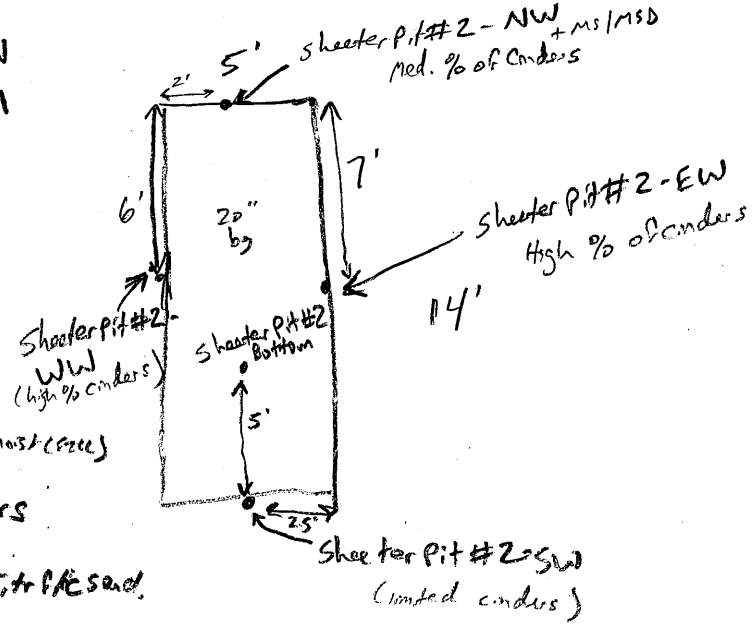 Sheeter Pit #2 - NW
+ MS/MSD
Med. % of Cinders
5'
2'
6'
7'
20"
bg
Sheeter Pit #2 - EW
High % of cinders
14'
Sheeter Pit #2 -
WW
(high % cinders)
Sheeter Pit #2
Bottom
5'
2.5'
Sheeter Pit #2-SW
(limited cinders)
rs